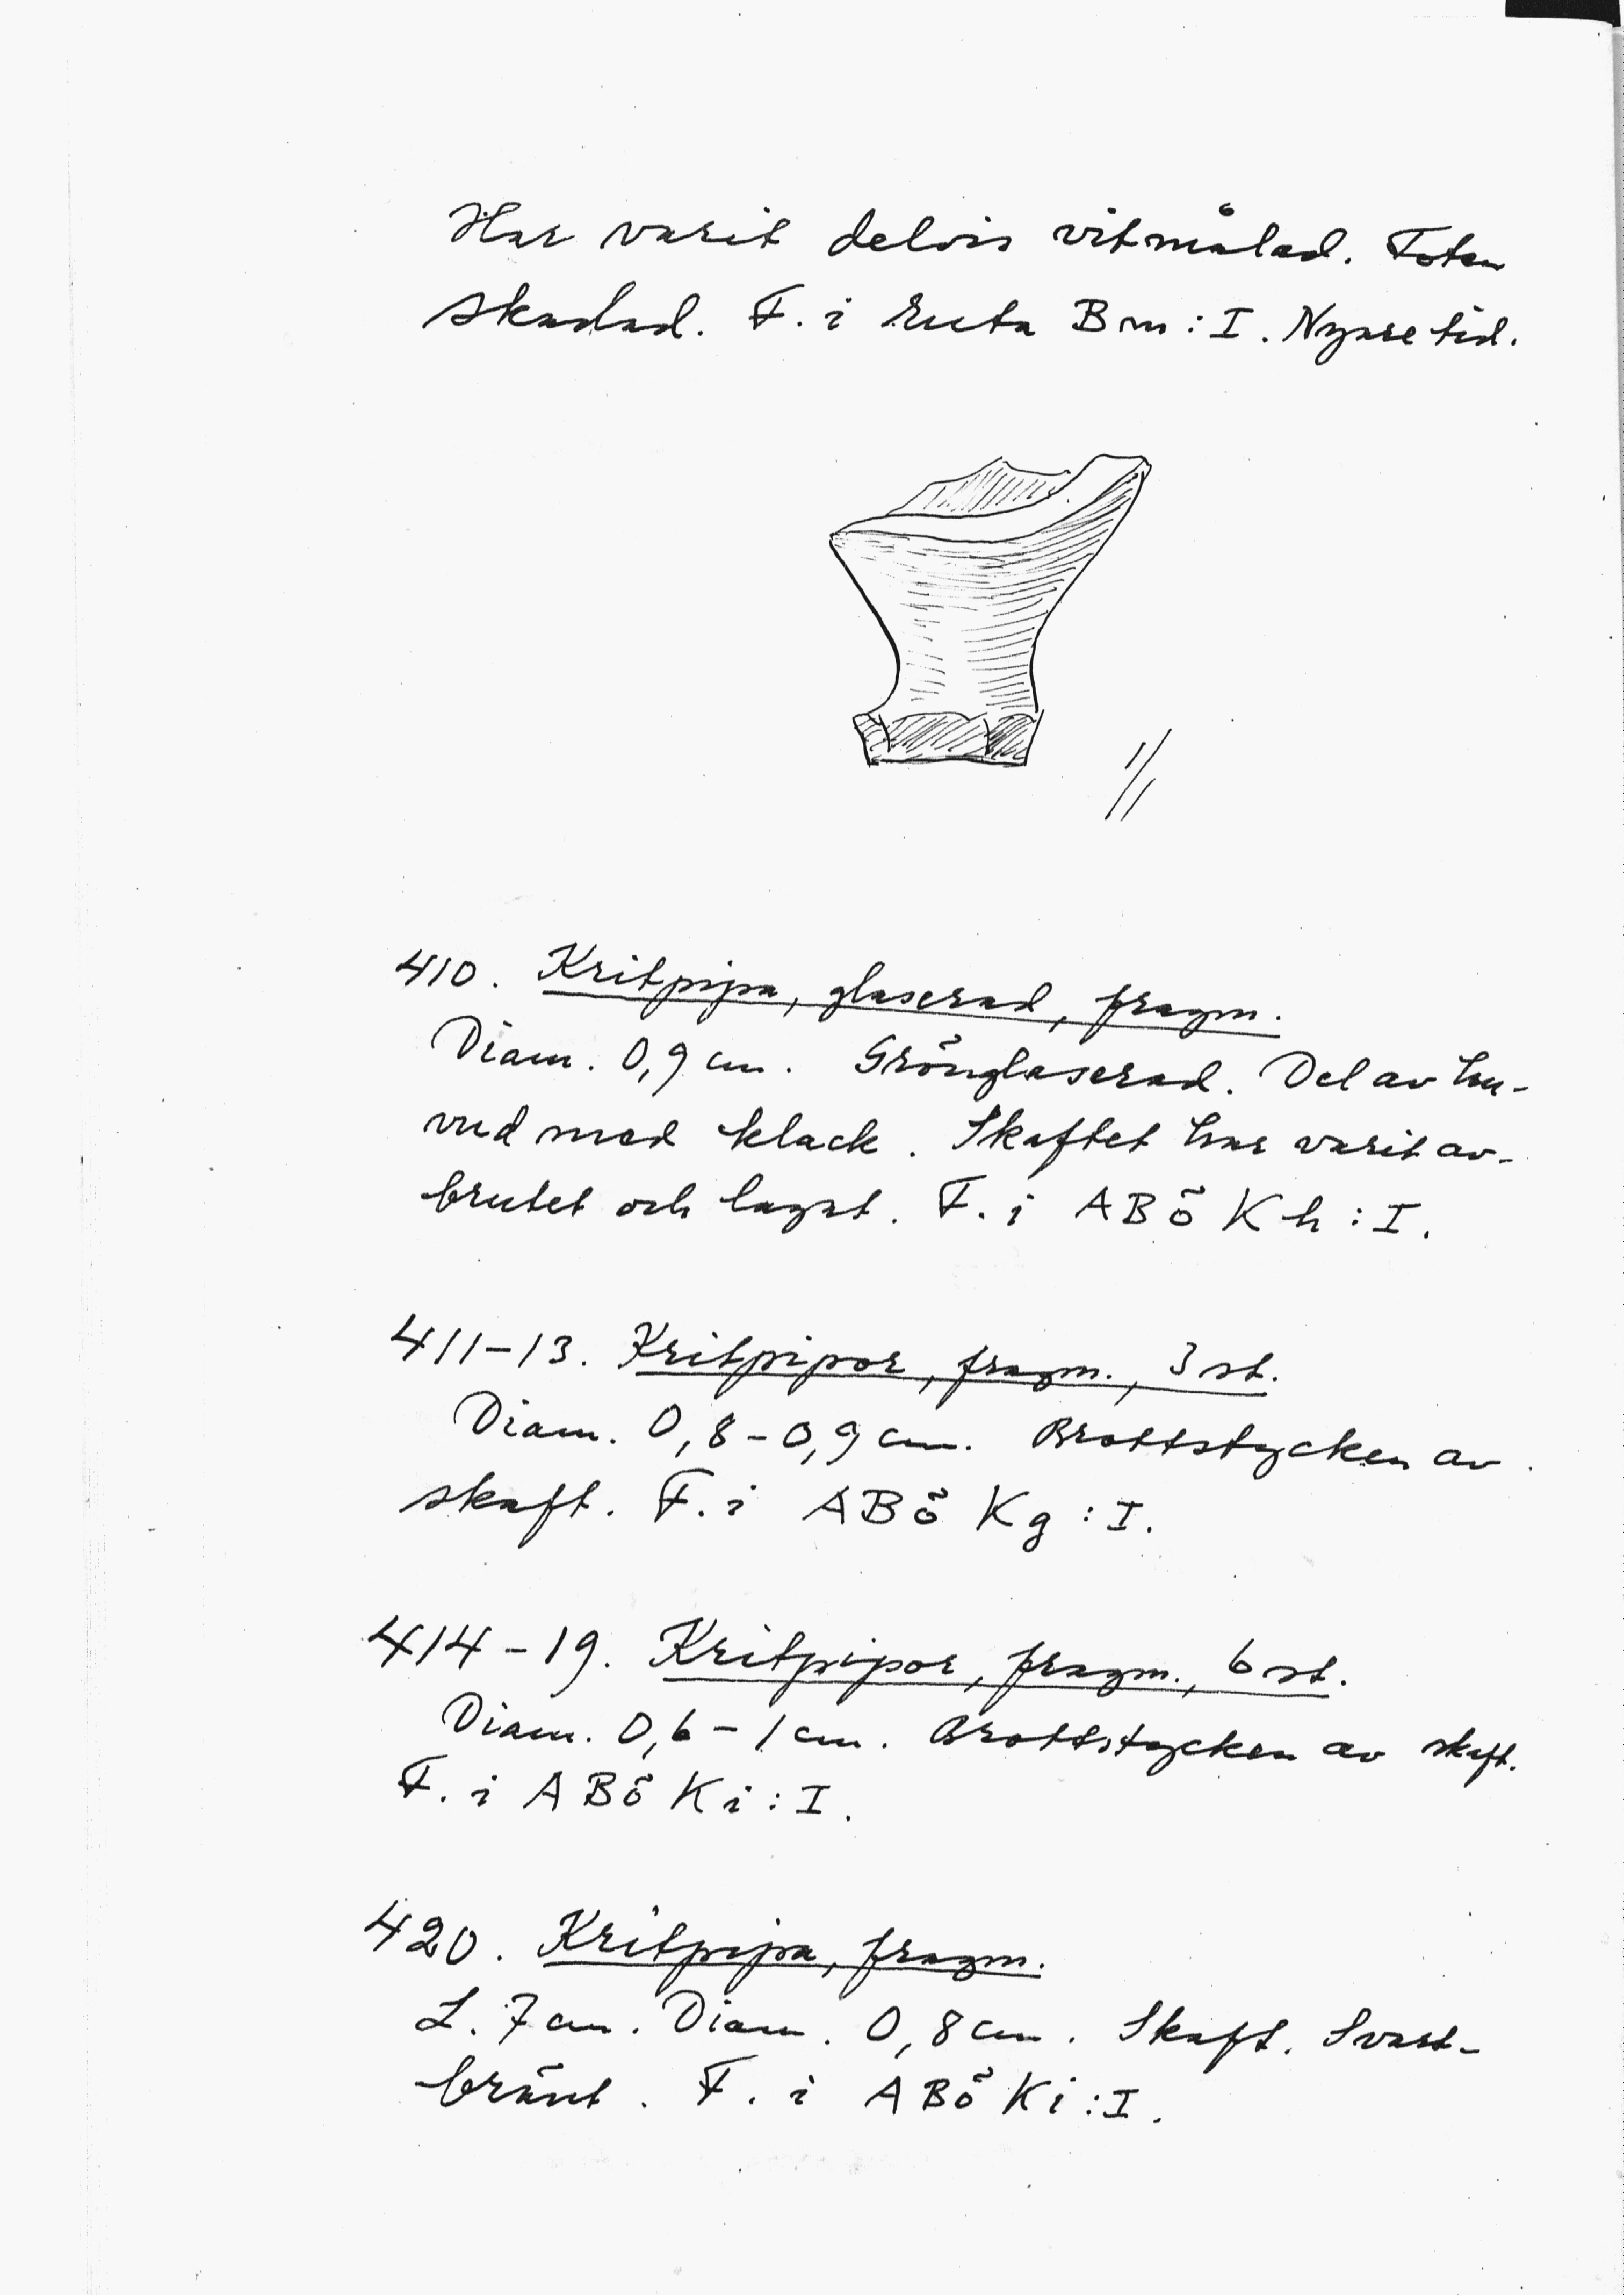 Har varit delvis vitmålad. Foten
skadad. F. i ruta Bm:I. Nyare tid.
1/1
410. Kritpipa, glaserad, fragm.
Diam. 0,9 cm. Grönglaserad. Del av hu-
vud med klack. Skaftet har varit av-
brutet och lagat. F. i ABÖ Kh:I.
411-13. Kritpipor, fragm., 3 st.
Diam. 0,8-0,9 cm. Brottstycken av
skaft. F. i ABÖ Kg:I.
414-19. Kritpipor, fragm., 6 st.
Diam. 0,6-1 cm. Brottstycken av skaft.
F. i ABÖ Ki:I.
420. Kritpipa, fragm.
L. 7 cm. Diam. 0,8 cm. Skaft. Svart-
bränt. F. i ABÖ Ki:I.